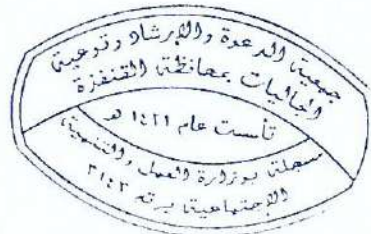 جمعية الدعوة والإرشاد وتوعية
الجاليات بمحافظة القنفذة
تأسست عام ١٤٢١ هـ
مسجلة بوزارة العمل والتنمية
الإجتماعية برقم ٣١٤٢